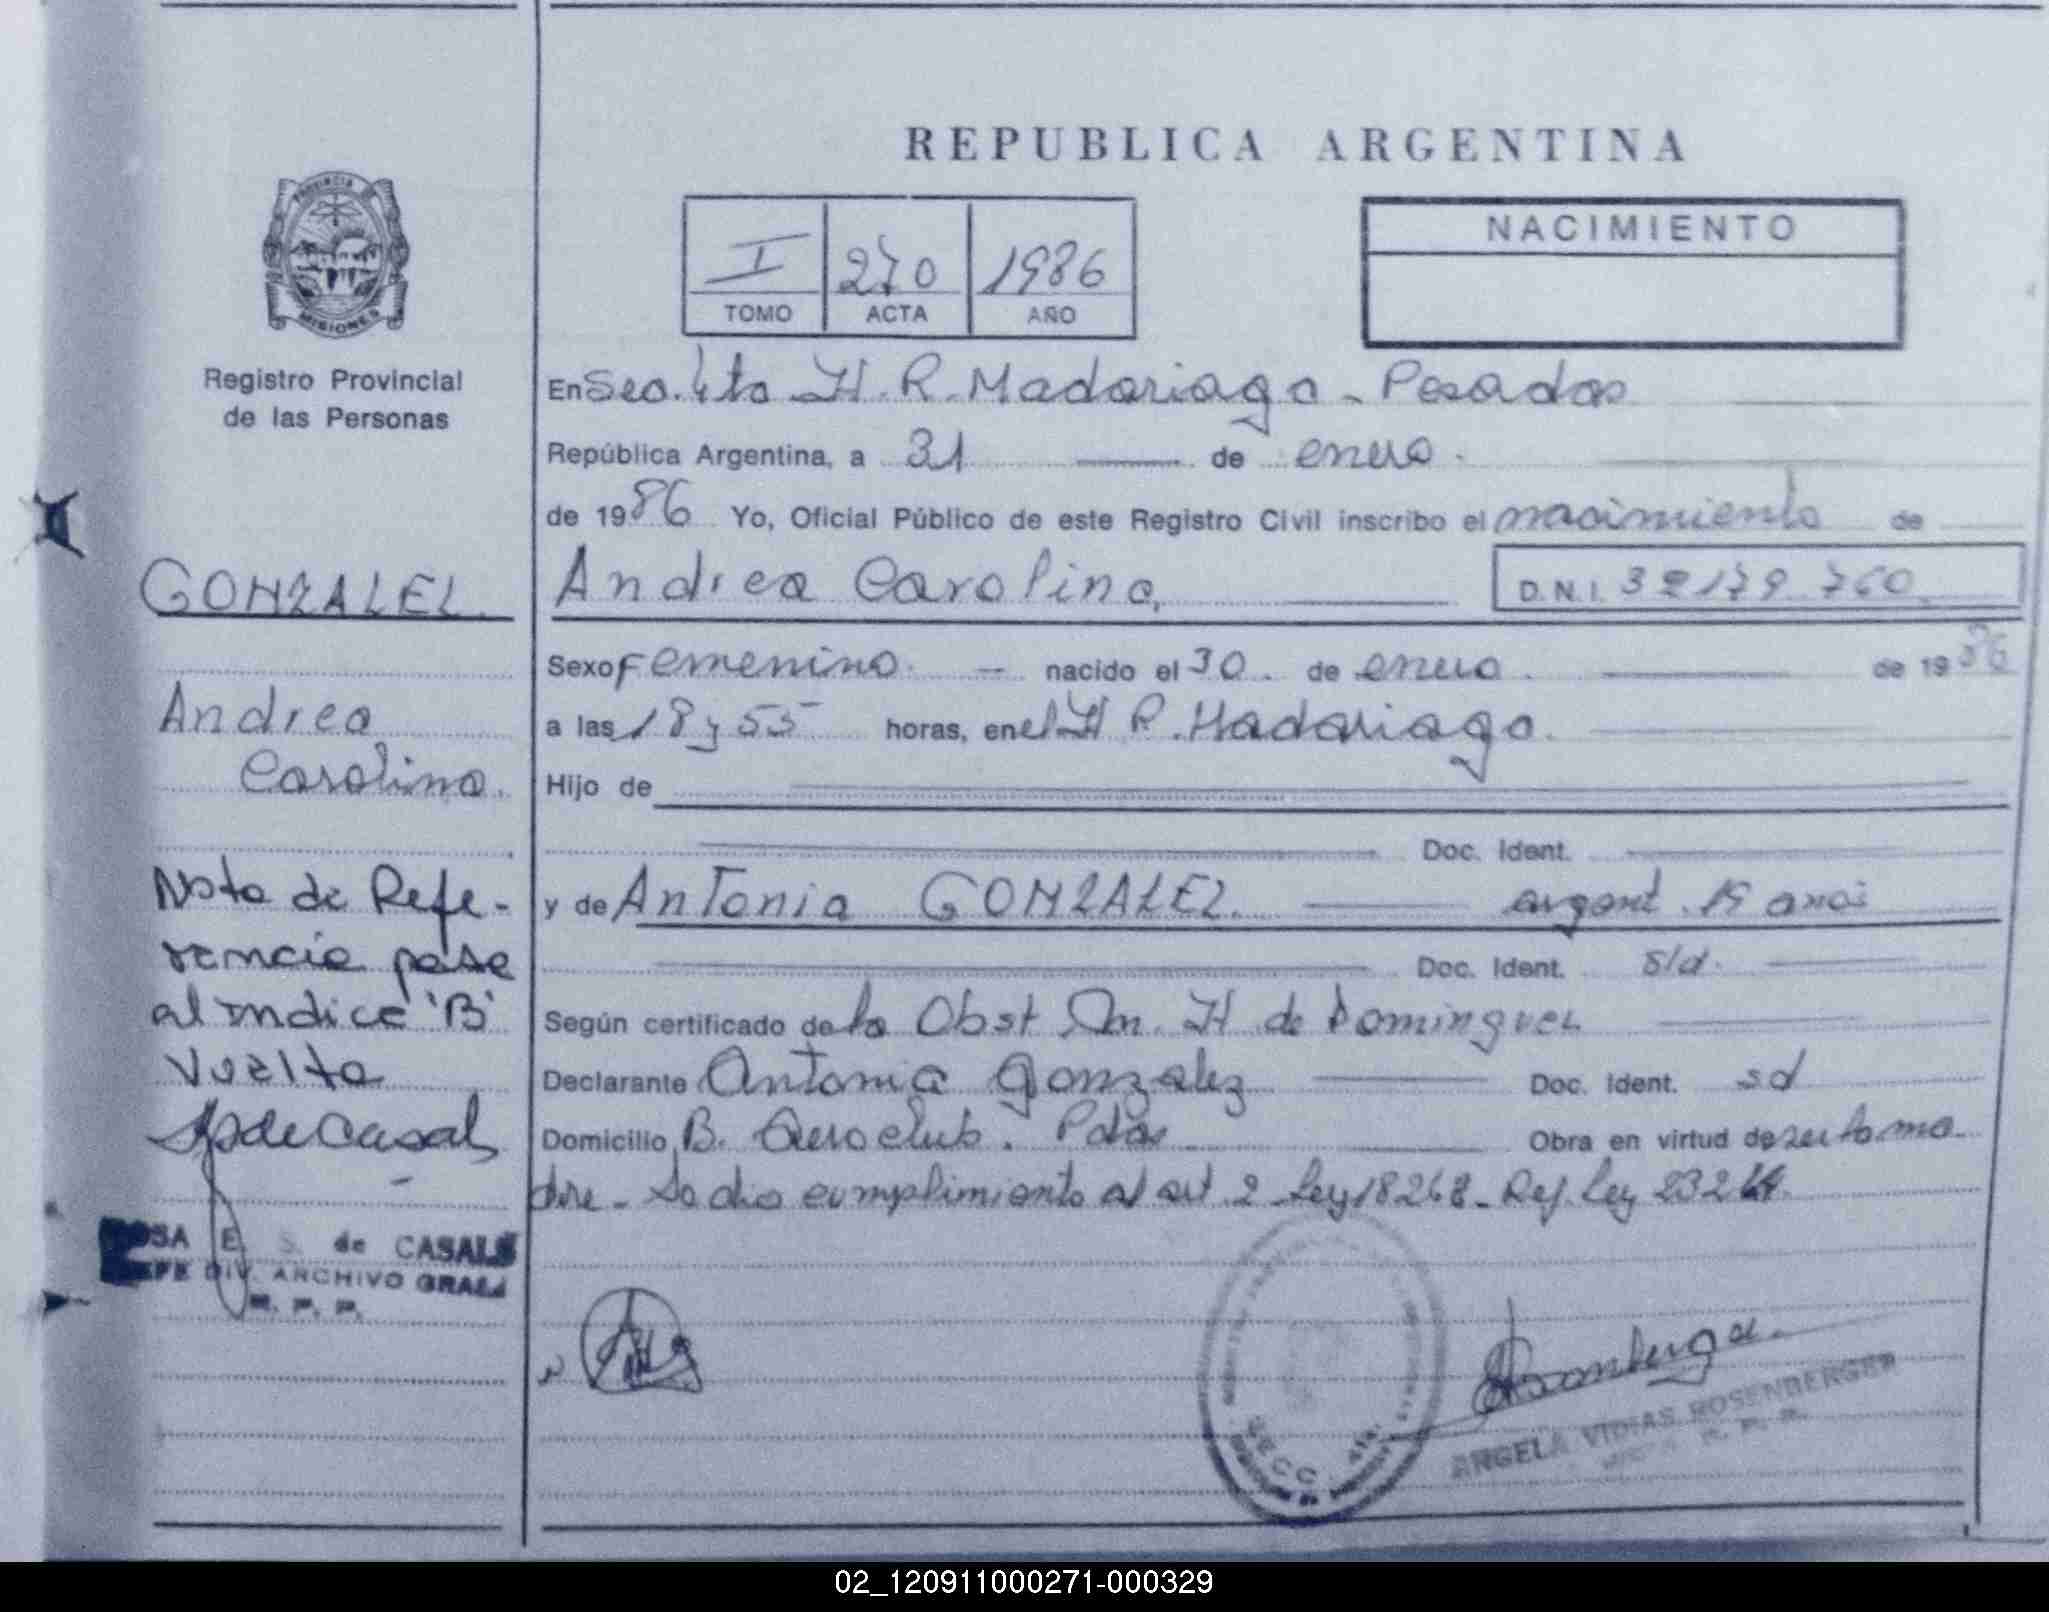 REPUBLICA ARGENTINA
PROVINCIA
MISIONES
I 270 1986
TOMO ACTA AÑO
NACIMIENTO
Registro Provincial
de las Personas
En Sec. 4ta H. R. Madariaga - Posadas
República Argentina, a 31 de enero.
de 1986 Yo, Oficial Público de este Registro Civil inscribo el nacimiento de
GONZALEZ.
Andrea Carolina, D.N.I. 32179 760.
Sexo femenino. - nacido el 30. de enero. de 1986
Andrea
Carolina.
a las 18 y 55 horas, en el H R. Madariaga.
Hijo de
Doc. Ident.
y de Antonia GONZALEZ. argent. 19 anos
Doc. Ident. s/d.
Según certificado de la Obst. H de Dominguez
Declarante Antonia Gonzalez Doc. Ident. sd
Domicilio B. Aeroclub. Pdas Obra en virtud de ser la ma-
dre - Se dio cumplimiento al art 2 Ley 18268 - Ref. Ley 23264.
Nota de Refe-
rencia pase
al Indice 'B'
Vuelta
de Casals
E. S. de CASALS
DIV. ARCHIVO GRAL
R. P. P.
SECC. 4ta.
ANGELA VIDIAS ROSENBERGER
R. P. P.
02_120911000271-000329